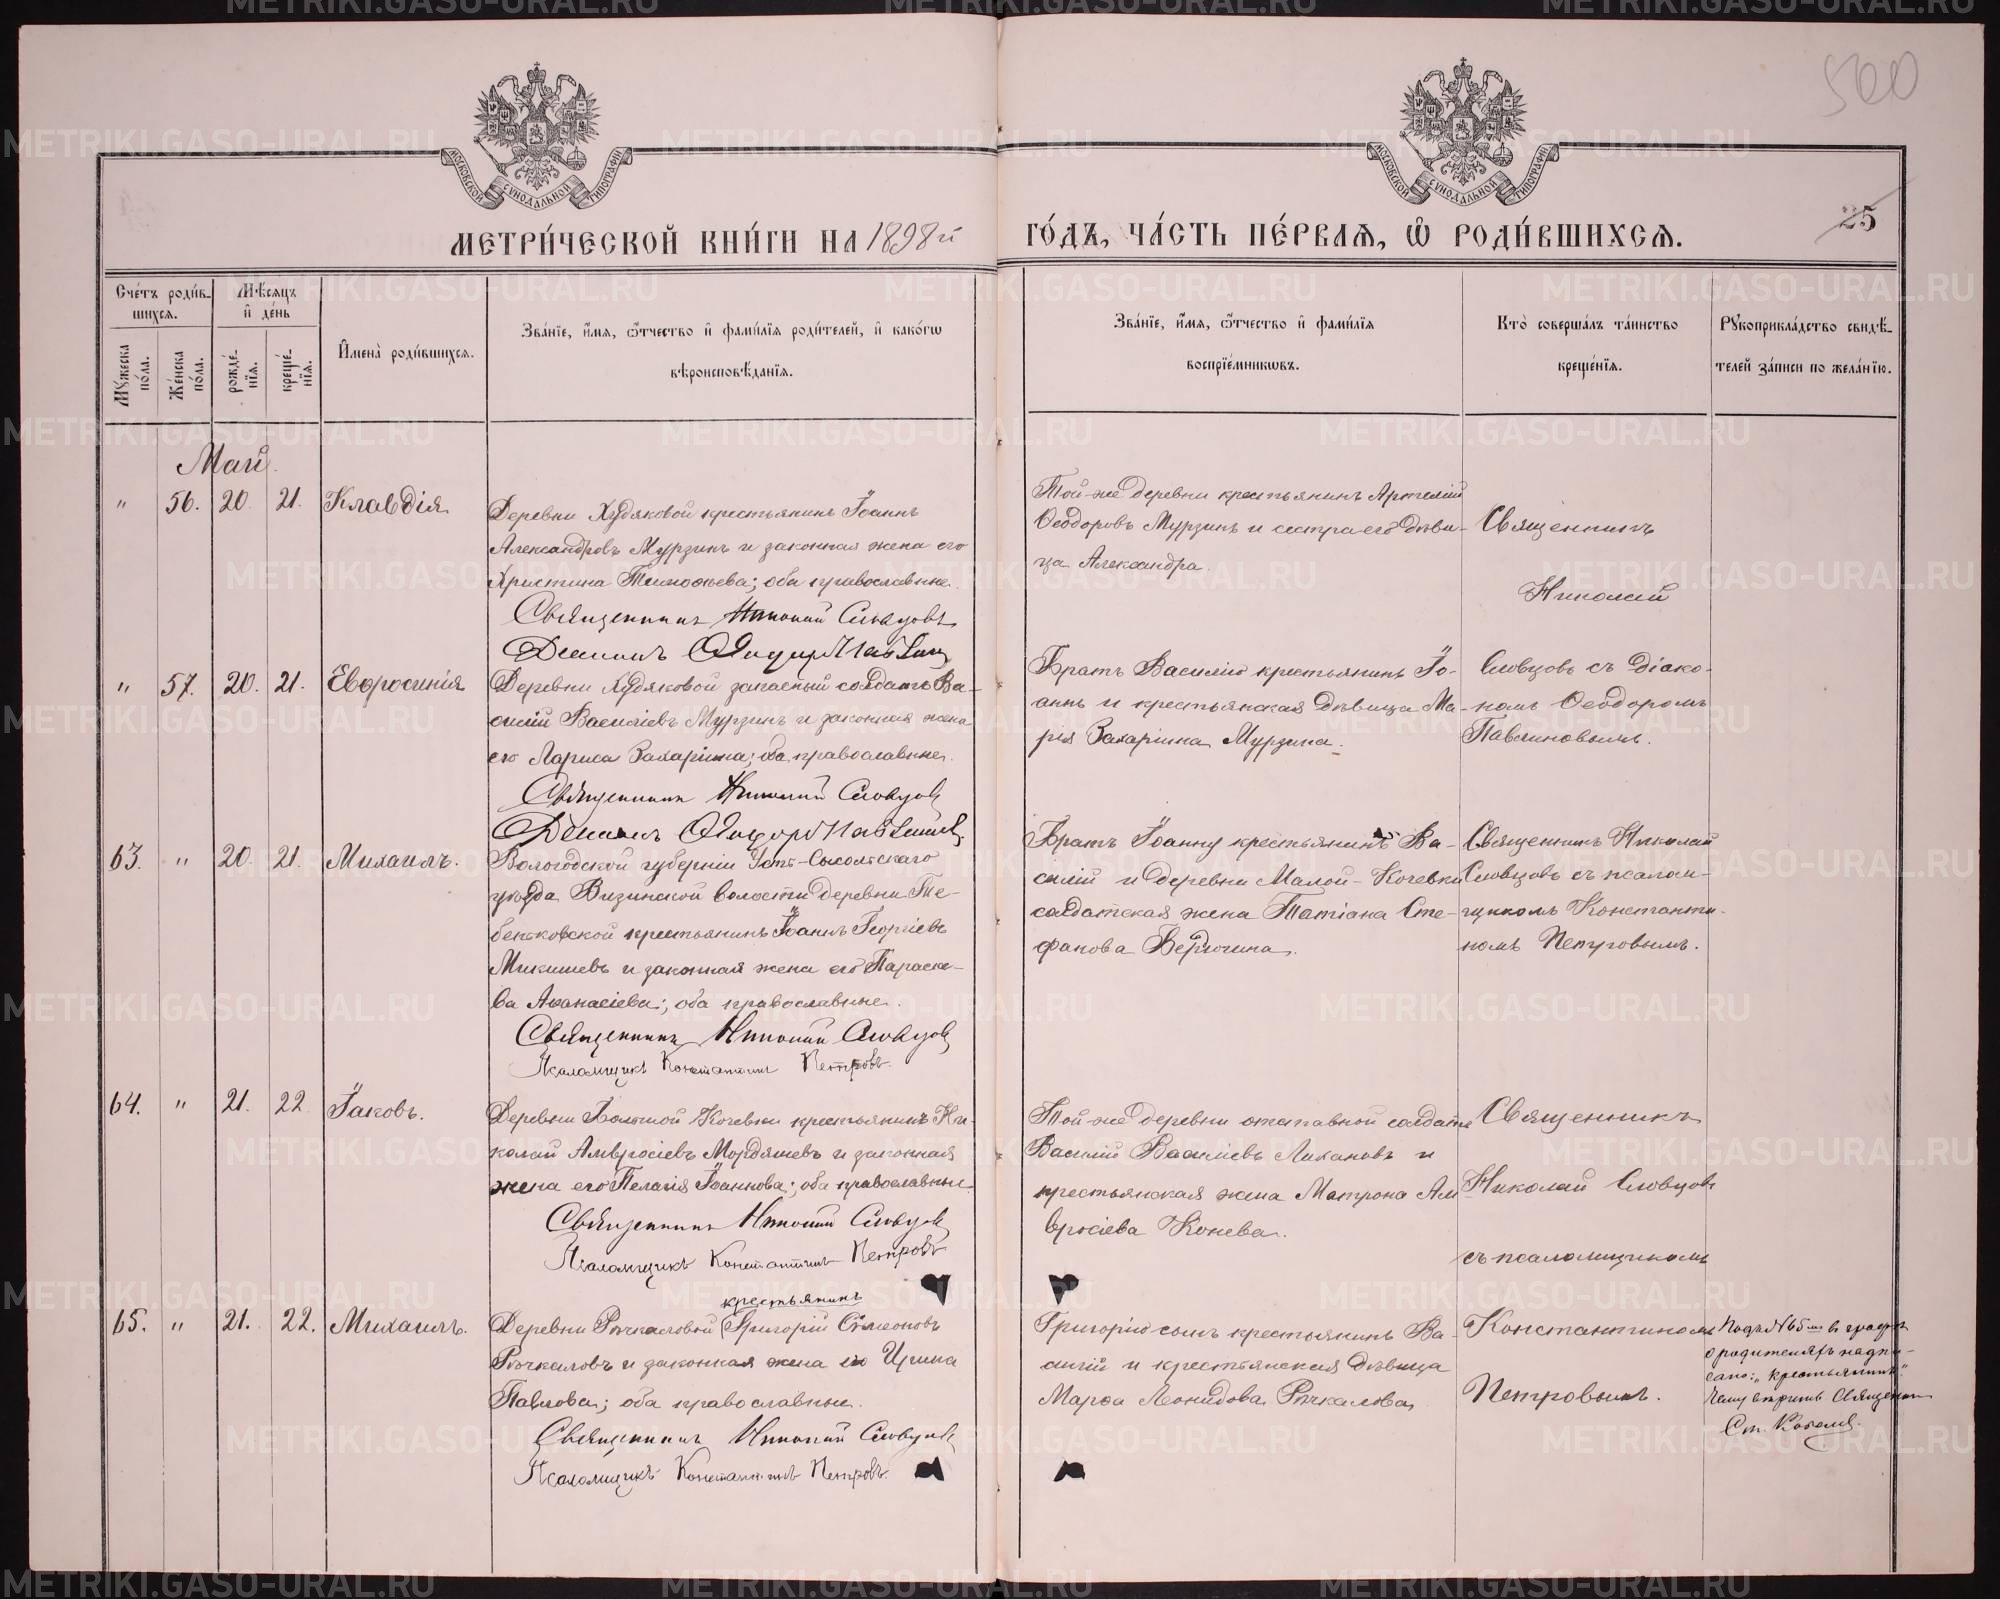 500
25
МЕТРИ́ЧЕСКОЙ КНИ́ГИ НА 1898й ГО́ДЪ, ЧА́СТЬ ПЕ́РВАѦ, Ѡ҆ РОДИ́ВШИХСѦ.
МОСКОВСКОЙ СѴНОДАЛЬНОЙ ТИПОГРАФІИ
МОСКОВСКОЙ СѴНОДАЛЬНОЙ ТИПОГРАФІИ
Сче́тъ роди́вшихсѧ.
Мꙋ́жеска по́ла.
Же́нска по́ла.
Мѣ́сѧцъ и҆ де́нь
рожде́нїѧ.
креще́нїѧ.
И҆мена̀ роди́вшихсѧ.
Зва́нїе, и҆́мѧ, ѻ҆́тчество и҆ фами́лїѧ роди́телей, и҆ како́гѡ
вѣроисповѣ́данїѧ.
Зва́нїе, и҆́мѧ, ѻ҆́тчество и҆ фами́лїѧ
воспрїе́мникѡвъ.
Кто̀ соверша́лъ та́инство
креще́нїѧ.
Рꙋкоприкла́дство свидѣ́-
телей за́писи по жела́нїю.
Май.
" 56. 20. 21. Клавдія
Деревни Худяковой крестьянинъ Іоаннъ
Александровъ Мурзинъ и законная жена его
Христина Тимоѳеева; оба православные.
Священникъ Николай Словцовъ
Діаконъ Ѳеодоръ Павлин
Той-же деревни крестьянинъ Артемій
Ѳеодоровъ Мурзинъ и сестра его дѣви-
ца Александра.
Священникъ
Николай
" 57. 20. 21. Евфросинія
Деревни Худяковой запасный солдатъ Ва-
силій Васильевъ Мурзинъ и законная жена
его Лариса Захаріина; оба православные.
Священникъ Николай Словцовъ
Діаконъ Ѳеодоръ Павлиновъ
Братъ Василію крестьянинъ Іо-
аннъ и крестьянская дѣвица Ма-
рія Захаріина Мурзина.
Словцовъ съ діако-
номъ Ѳеодоромъ
Павлиновымъ.
63. " 20. 21. Михаилъ.
Вологодской губерніи Усть-Сысольскаго
уѣзда Визинской волости деревни Те-
бентовской крестьянинъ Іоаннъ Георгіевъ
Микишевъ и законная жена его Параске-
ва Аѳанасіева; оба православные.
Священникъ Николай Словцовъ
Псаломщикъ Константинъ Петровъ.
Братъ Іоанну крестьянинъ Ва-
силій и деревни Малой-Кочевки
солдатская жена Татіана Сте-
фанова Вердюгина.
Священникъ Николай
Словцовъ съ псалом-
щикомъ Константи-
номъ Петровымъ.
64. " 21. 22. Іаковъ.
Деревни Большой Кочевки крестьянинъ Ни-
колай Амвросіевъ Мордяшевъ и законная
жена его Пелагія Іоаннова; оба православные.
Священникъ Николай Словцовъ
Псаломщикъ Константинъ Петровъ
Той-же деревни отставной солдатъ
Василій Васильевъ Лихановъ и
крестьянская жена Матрона Ам-
вросіева Конева.
Священникъ
Николай Словцовъ
съ псаломщикомъ
65. " 21. 22. Михаилъ.
крестьянинъ
Деревни Рычкаловой Григорій Симеоновъ
Рычкаловъ и законная жена его Ирина
Павлова; оба православные.
Священникъ Николай Словцовъ
Псаломщикъ Константинъ Петровъ.
Григорію сынъ крестьянинъ Ва-
силій и крестьянская дѣвица
Марѳа Леонидова Рычкалова
Константиномъ
Петровымъ.
Подъ № 65мъ въ графѣ
о родителяхъ надпи-
сано: "крестьянинъ".
Священ
METRIKI.GASO-URAL.RU